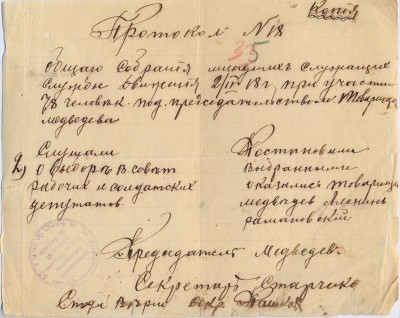 Копія
Протокол N 18
35
Общаго Собранія младшихъ служащихъ
Службы Движенія 2/IV 18 г. при участіи
78 человѣк. под. председательством. Товарища
Медведева
Слушали
2) о выборѣ в. совет
рабочих и солдатских
депутатов
Постановили
Выбранными
оказались товарищи
Медведев
Романовский
Председатель Медведев.
Секретарь Старченко
Секр.